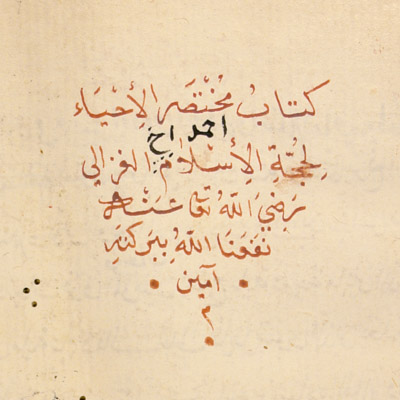 كتابُ مُخْتَصَر الِأحْيَاء
احمد اخ
لِحجَّةِ الِأسْلَام الغزالي
رَضِيَ اللّهُ تعا عَنْه
نَفَعَنَا اللّهُ بِبَركتِهِ
آمين
م